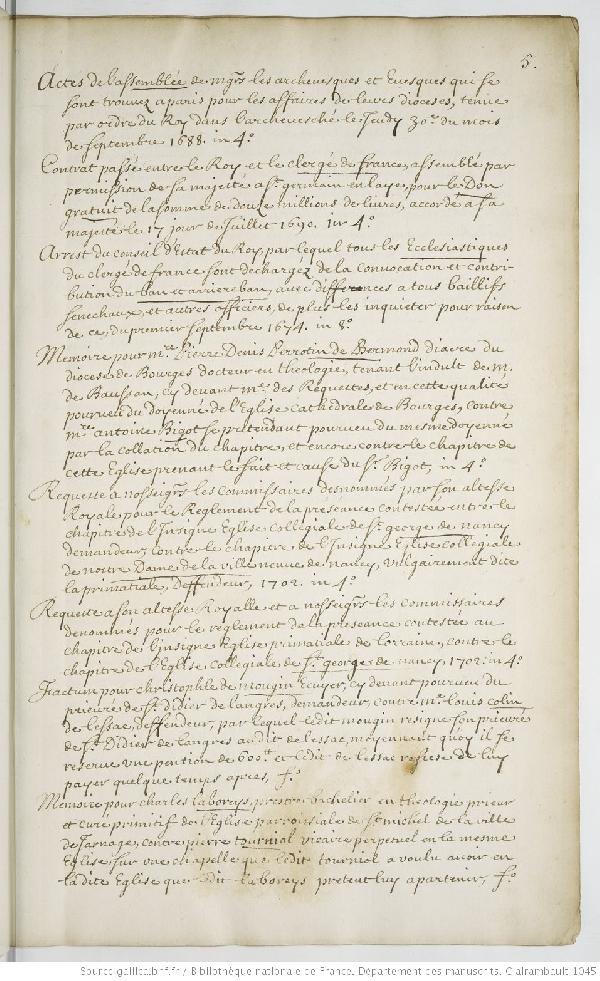 5.
Actes de l'assemblée de mgrs les archevesques et Evesques qui se
sont trouvez a paris pour les affaires de leurs dioceses, tenue
par ordre du Roy dans l'archevesché le Jeudy 30e du mois
de septembre 1688. in 4°
Contrat passé entre le Roy et le clergé de france, assemblé par
permission de sa majesté a st. germain en laye, pour le Don
gratuit de la somme de douze millions de livres, accordé a sa
majesté le 17 jour de Juillet 1690. in 4°
Arrest du conseil d'Estat du Roy, par lequel tous les Ecclesiastiques
du clergé de france sont dechargéz de la convocation et contri-
bution du ban et arriere ban, avec differences a tous baillifs
senechaux, et autres officiers, de plus les inquieter pour raison
de ce, du premier septembre 1674. in 8°
Memoire pour mre Pierre Denis Perrotin de Bermond diacre du
diocese de Bourges docteur en theologie, tenant l'indult de m.
de Bausson, cy devant me des Requettes, et en cette qualité
pourveu du doyenné de l'Eglise Cathedrale de Bourges, contre
mre antoine Bigot se pretendant pourveu du mesme doyenné
par la collation du chapitre, et encore contre le chapitre de
cette Eglise prenant le fait et cause du Sr. Bigot, in 4°
Requette a nosseigrs les commissaires desnommés par son altesse
Royale pour le Reglement de la preseance contestée entre le
chapitre de l'Insigne Eglise collegiale de St. george de nancy
demandeur, contre le chapitre de l'Insigne Eglise collegiale
de nostre Dame de la ville neuve de nancy, vulgairement dite
la primatiale, Deffendeur, 1702. in 4°
Requette a son altesse Royalle et a nosseigrs les commissaires
denommés pour le reglement de la preseance contestée au
chapitre de l'insigne Eglise primatiale de lorraine, contre le
chapitre de l'Eglise collegiale de St. george de nancy, 1702. in 4°
Factum pour christophle de mougin Ecuyer, cy devant pourveu du
prieuré de St. Didier de langres, demandeur, contre me louis colin
de lessac, deffendeur, par lequel ledit mougin resigne son prieuré
de St. Didier de langres au dit de lessac, moyennant quoy il se
reserve une pention de 600tt et ledit de lessac refuse de luy
payer quelque temps apres, f°
Memoire pour charles laboreys, prestre bachelier en theologie prieur
et curé primitif de l'Eglise parroissiale de St. michel de la ville
de Jarnage, contre pierre tourniol vicaire perpetuel en la mesme
Eglise sur une chapelle que ledit tourniol a voulu avoir en
la dite Eglise que ledit laboreys pretent luy apartenir, f°
Source gallica.bnf.fr / Bibliothèque nationale de France. Département des manuscrits. Clairambault 1045